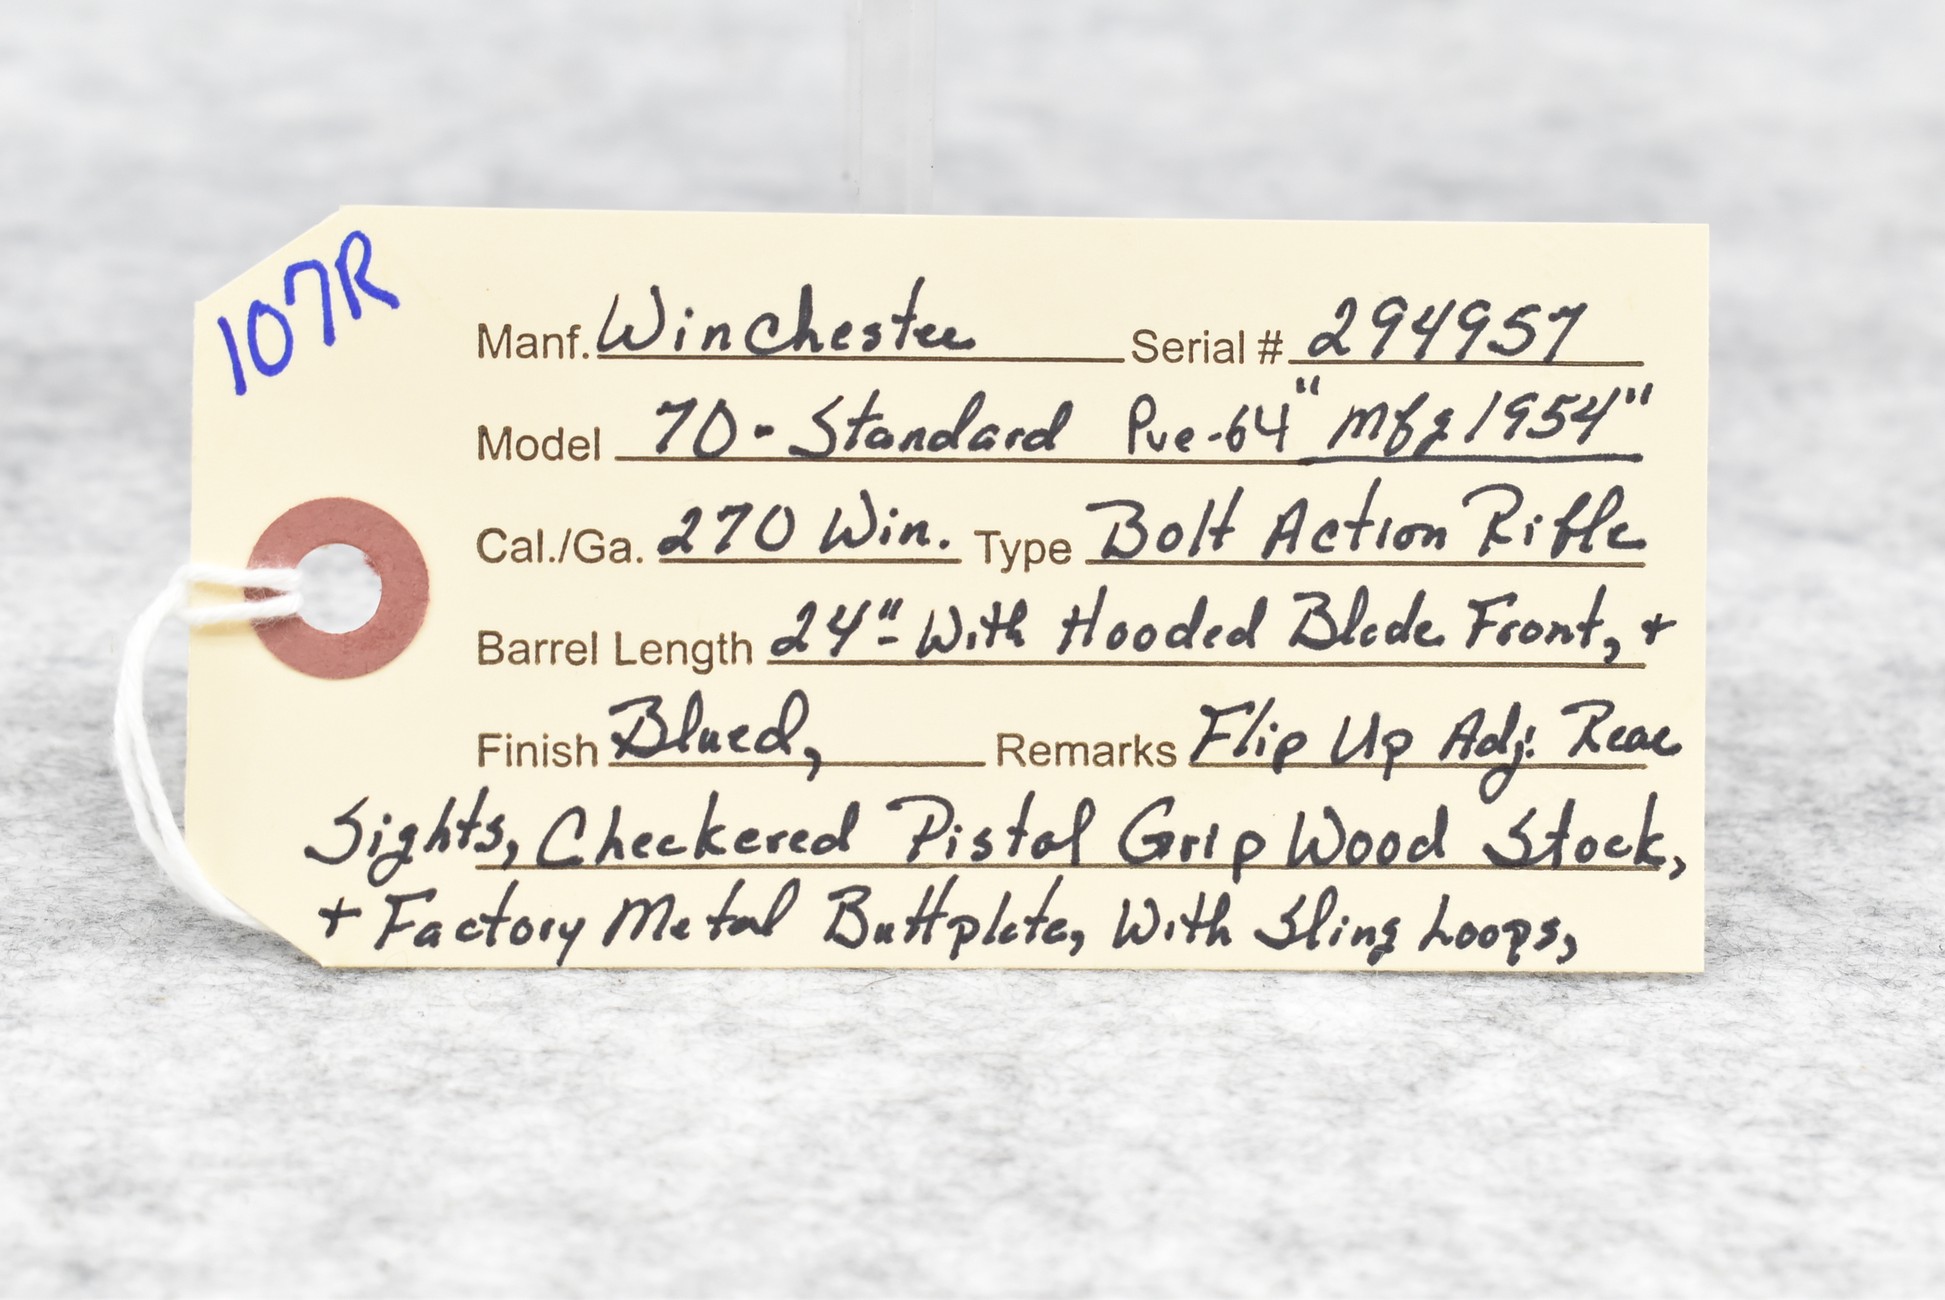 107R
Manf. Winchester Serial # 294957
Model 70 - Standard Pre-64 "Mfg 1954"
Cal./Ga. 270 Win. Type Bolt Action Rifle
Barrel Length 24" - With Hooded Blade Front, +
Finish Blued, Remarks Flip Up Adj. Rear
Sights, Checkered Pistol Grip Wood Stock,
+ Factory Metal Buttplate, With Sling Loops,